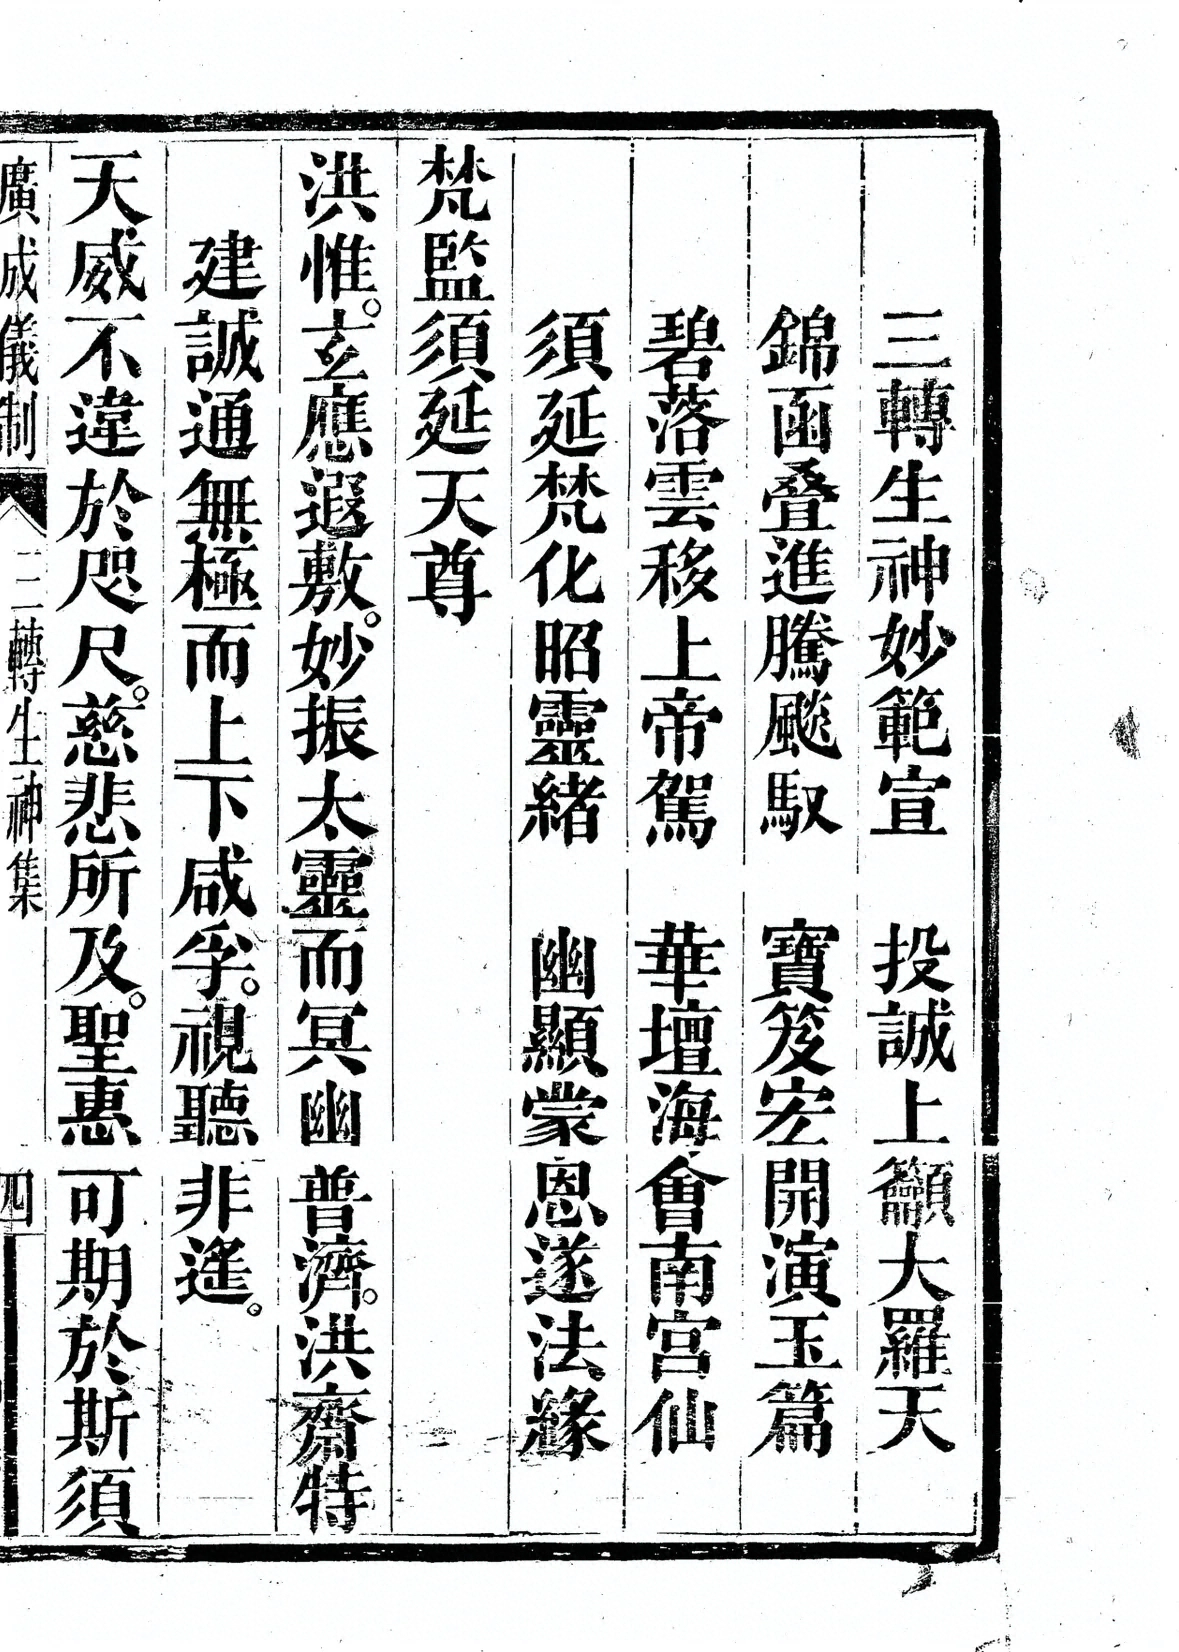 三轉生神妙範宣　投誠上籲大羅天
錦函叠進騰飈馭　寶笈宏開演玉篇
碧落雲移上帝駕　華壇海會南宮仙
須延梵化昭靈緒　幽顯蒙恩遂法緣
梵監須延天尊
洪惟。玄應遐敷。妙振太靈而冥幽普濟。洪齋特
建誠通無極而上下咸孚。視聽非遙。
天威不違於咫尺。慈悲所及。聖惠可期於斯須
廣成儀制　三轉生神集　四